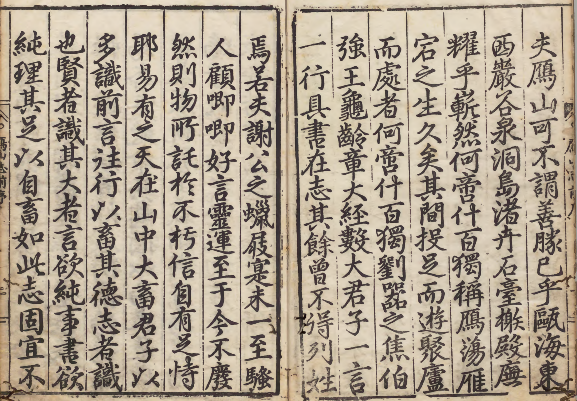 夫鴈山可不謂善勝已乎甌海東
西巖谷泉洞島渚卉石臺榭殿廡
耀乎嶄然何啻什百獨稱鴈蕩雁
宕之生久矣其間投足而遊聚廬
而處者何啻什百獨劉器之焦伯
強王龜齡章大經數大君子一言
一行具書在志其餘曾不得列姓
焉若夫謝公之蠟屐寔未一至騷
人顧唧唧好言靈運至于今不廢
然則物所託於不朽信自有足恃
耶易有之天在山中大畜君子以
多識前言往行以畜其德志者識
也賢者識其大者言欲純事書欲
純理其足以自畜如此志固宜不